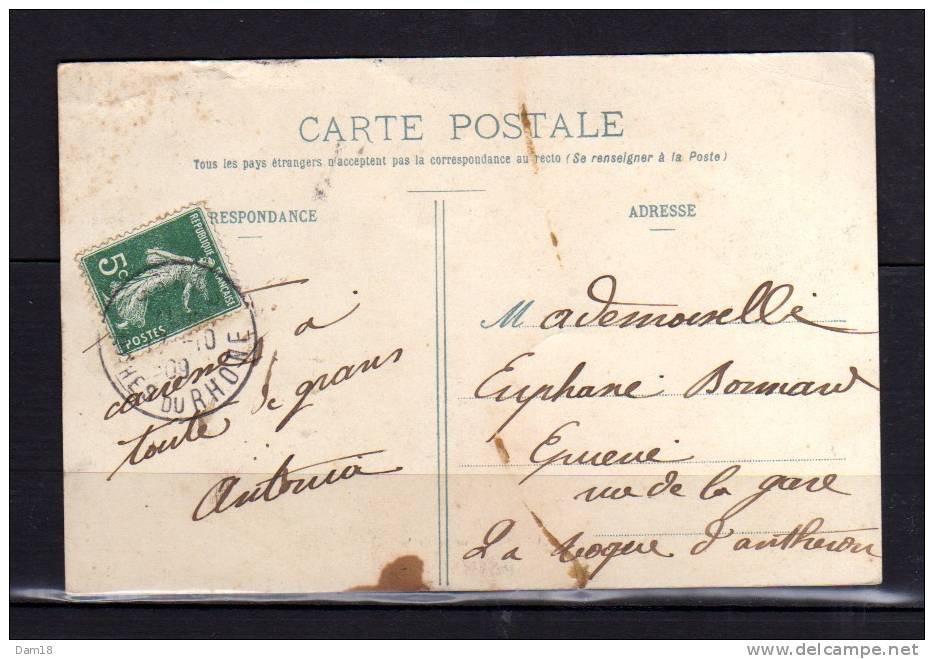 CARTE POSTALE
Tous les pays étrangers n'acceptent pas la correspondance au recto (Se renseigner à la Poste)
RESPONDANCE
ADRESSE
RÉPUBLIQUE FRANÇAISE
5c
POSTES
-10
09
DU RHONE
à
toute de grans
Antonia
Mademoiselle
Euphane Bonnard
rue de la gare
La roque d'antheron
Dam18
http://www.delcampe.net